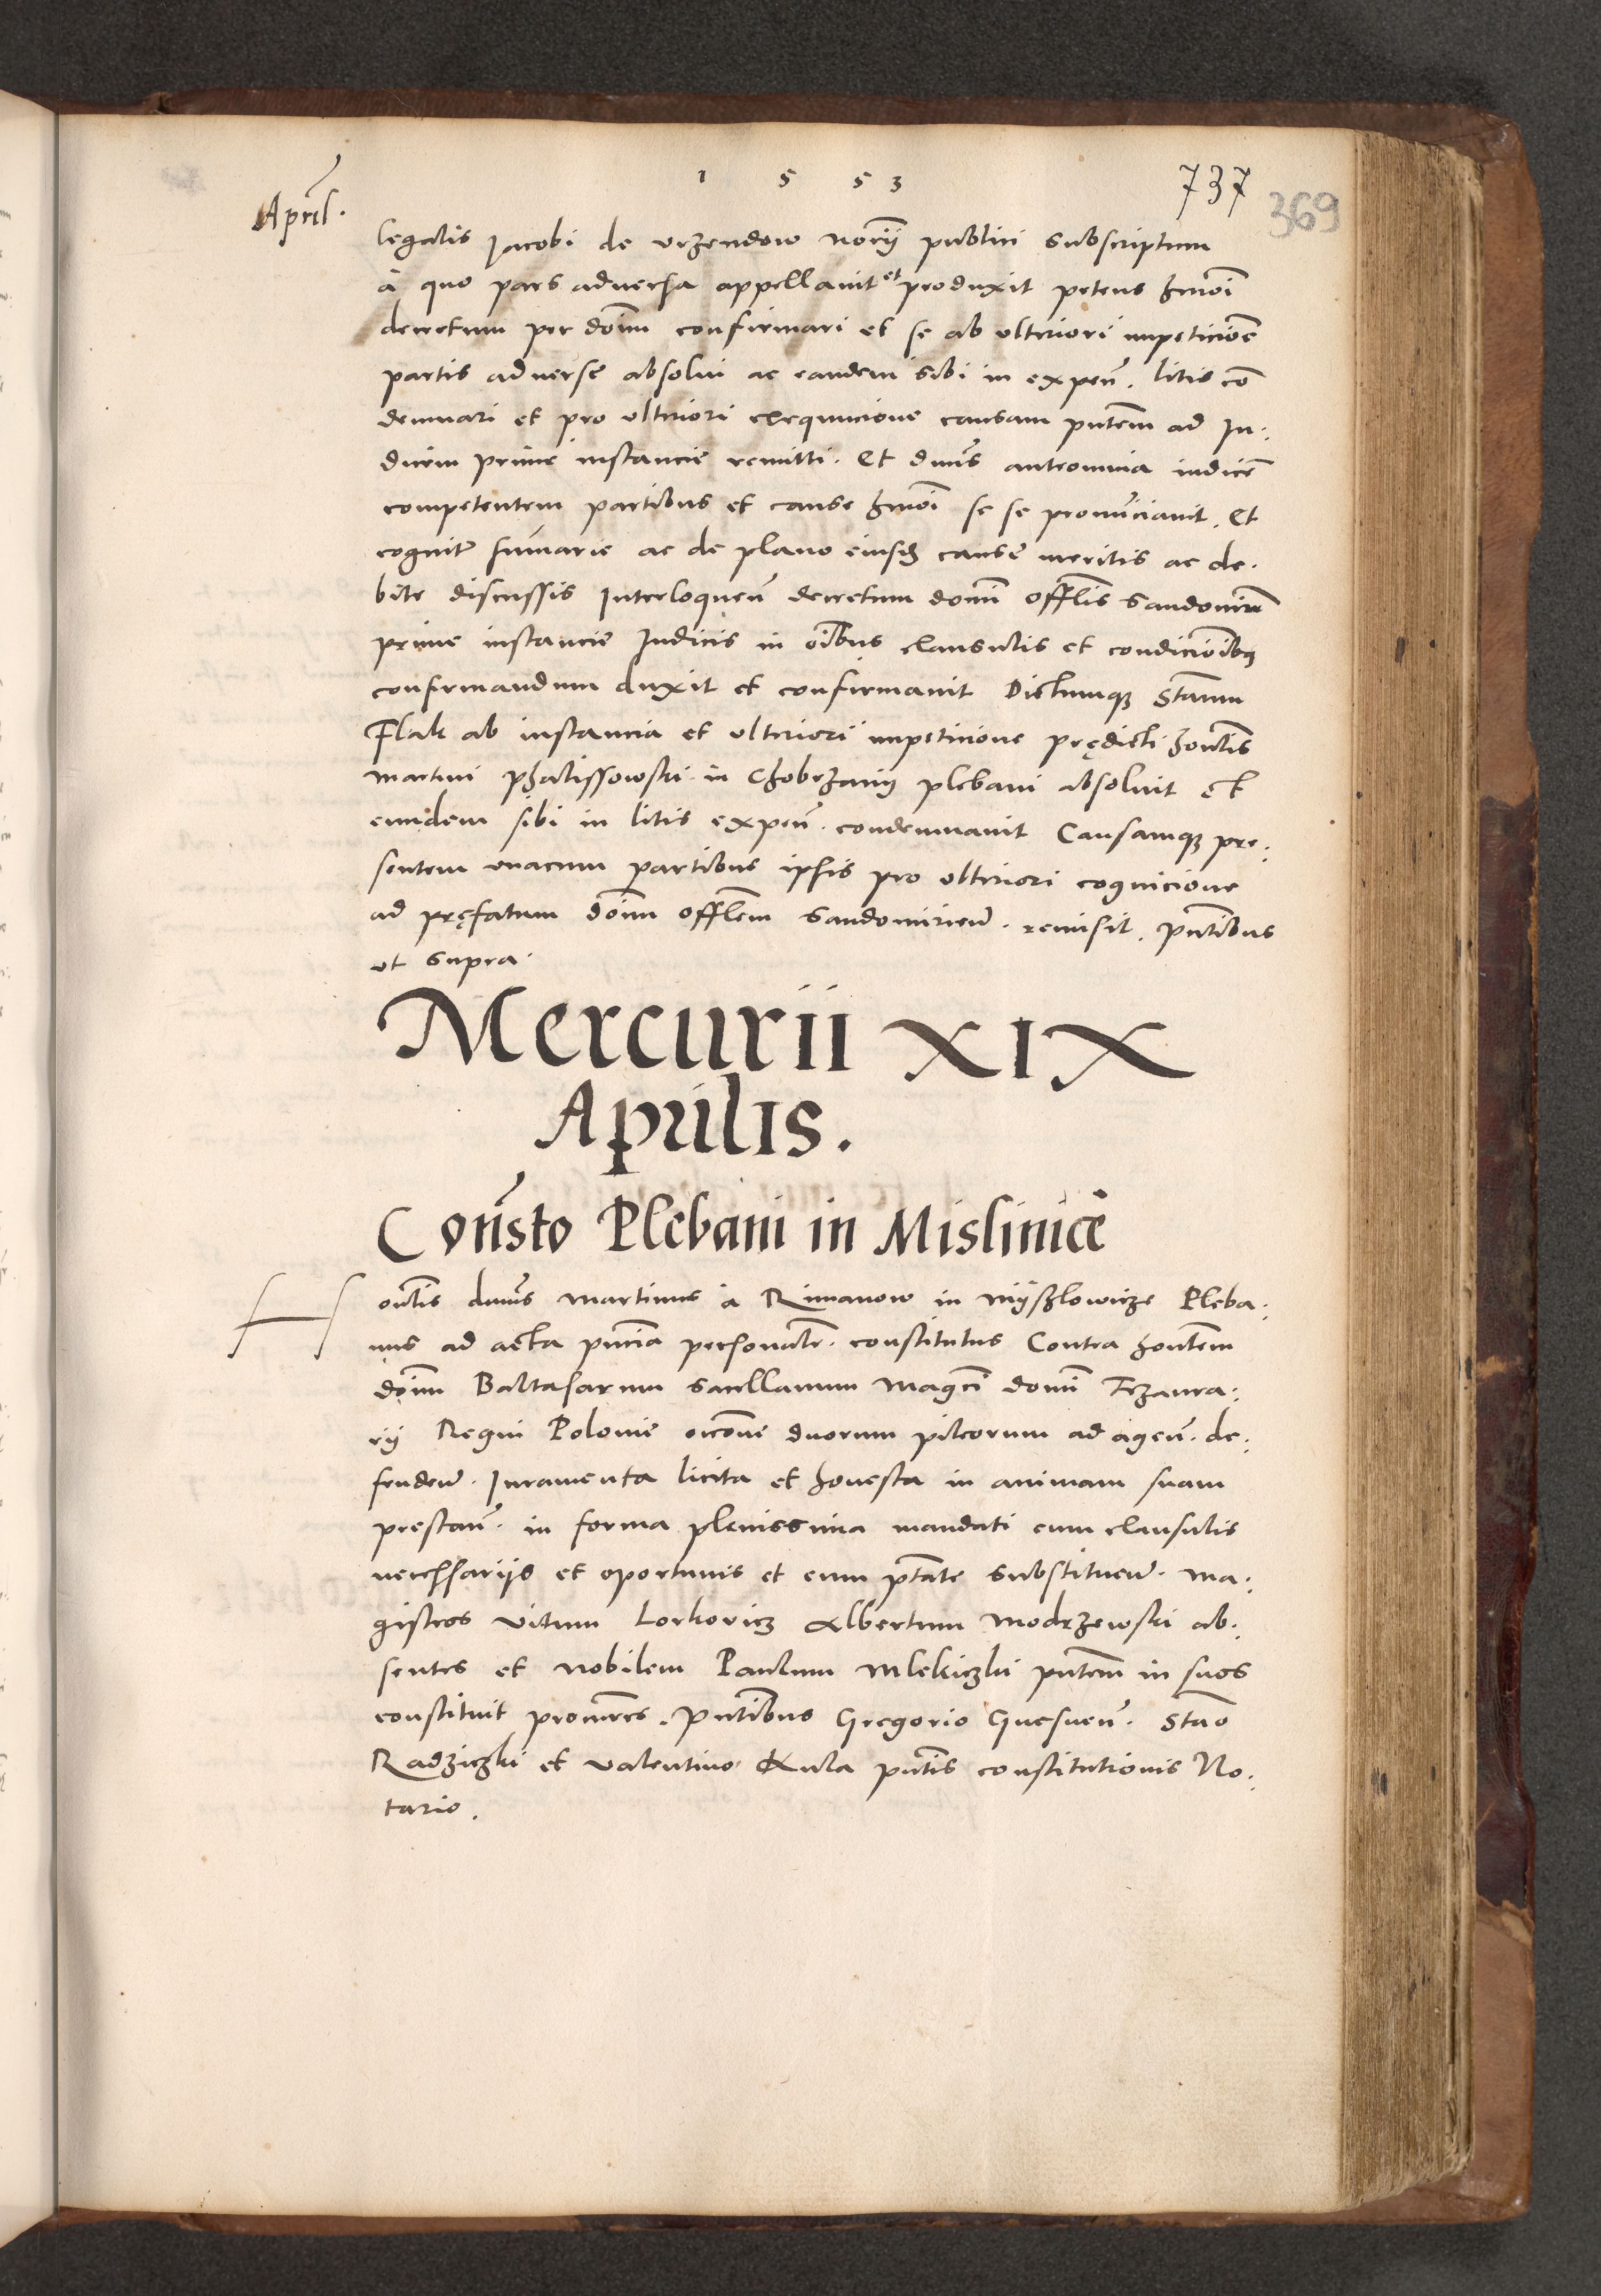 1 5 5 3
737
369
Apríl.
legalis Jacobi de vrzendow norij publici subscriptum
à quo pars aduersa appellauit et produxit petens hmoi
decretum per dom̃ confirmari et se ab vlteriori impeticioẽ
partis aduerse absolui ac eandem sibi in expeñ. litis cõ
demnari et pro vlteriori exequucione causam pñtem ad Ju:
dicem prime instancie remitti. Et dñs anteomnia iudicẽ
competentem partibus et cause hmoi se se pronũciauit. Et
cognit̃ sum̃arie ac de plano eiusdẽ cause meritis ac de.
bite discussis Interloqueñ decretum domi offlis Sandomirẽ
prime instancie Judicis in oĩbus clausulis et condicioĩbus
confirmandum duxit et confirmauit Dictumque Stanm
Flak ab instancia et vlteriori impeticione prędicti honlis
martini phalissowski in Chobrzanij plebani absoluit Et
eundem sibi in litis expeñ. condemnauit Causamque pre:
sentem vnacum partibus ipsis pro vlteriori cognicione
ad pręfatum dom̃ offlem Sandomirieñ. remisit. Pñtibus
vt supra.
Mercurii XIX
Aprilis.
Coñsto Plebani in Mislinicẽ
Honlis dnus Martinus à Rimanow in Mÿszlowicze Pleba:
nus ad acta pñcia personalr. constitutus Contra honlem
dom̃ Baltasarum Sacellanum Magci domi Trzaura:
rij Regni Polonie oicõne duorum pileorum ad ageñ. de:
fendeñ. Juramenta licita et honesta in animam suam
prestañ. in forma plenissima mandati cum clausulis
necessarijs et oportunis et cum ptãte substitueñ. Ma:
gistros Vitum Lorkovicz Albertum Modrzewski ab:
sentes et nobilem Paulum Mlekiczki pñtem in suos
constituit procures. Pñtibus Gregorio Gnesneñ. Stão
Radziczki et Valentino Kula pñtis constitutionis No:
tario.